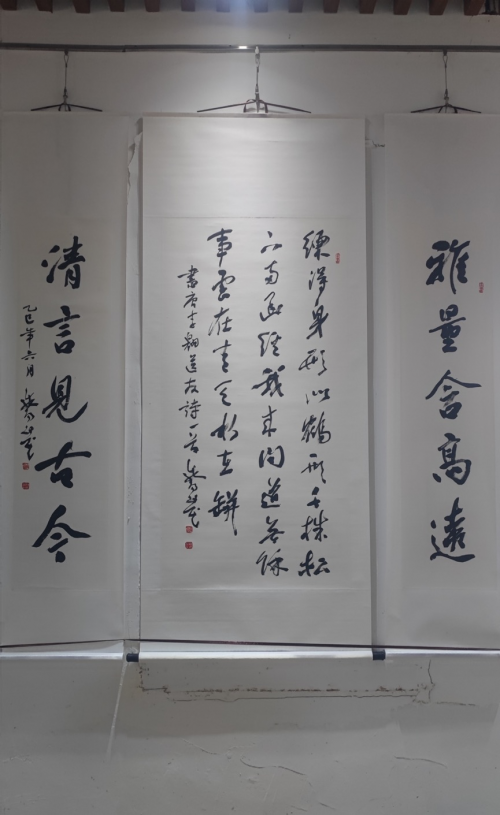 雅量含高遠
練得身形似鶴形千株松
下兩函經我來問道無餘
事雲在青天水在缾
書唐李翱 友詩一首
清言見古今
乙巳年六月